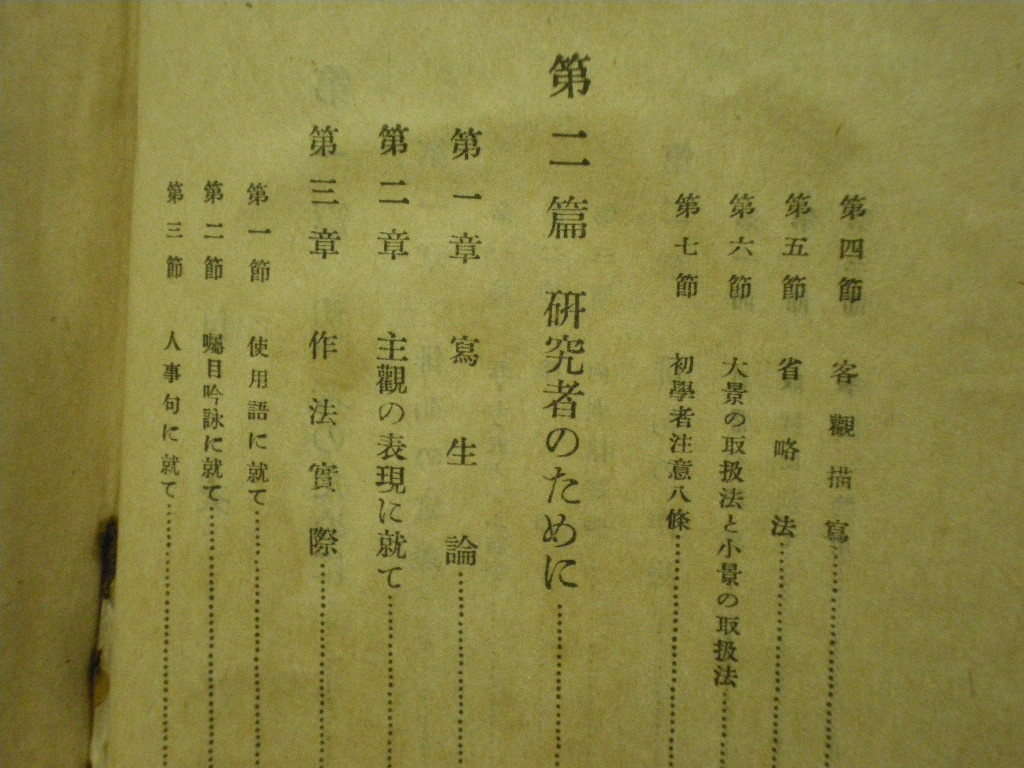 第四節 客觀描寫
第五節 省略法
第六節 大景の取扱法と小景の取扱法
第七節 初學者注意八條
第二篇 研究者のために
第一章 寫生論
第二章 主觀の表現に就て
第三章 作法實際
第一節 使用語に就て
第二節 囑目吟詠に就て
第三節 人事句に就て